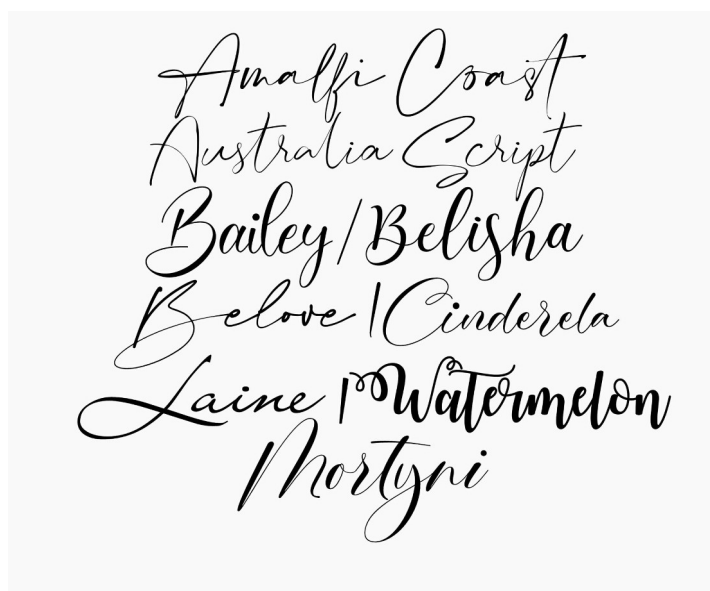 Amalfi Coast
Australia Script
Bailey/Belisha
Belove |Cinderela
Laine |Watermelon
Mortyni